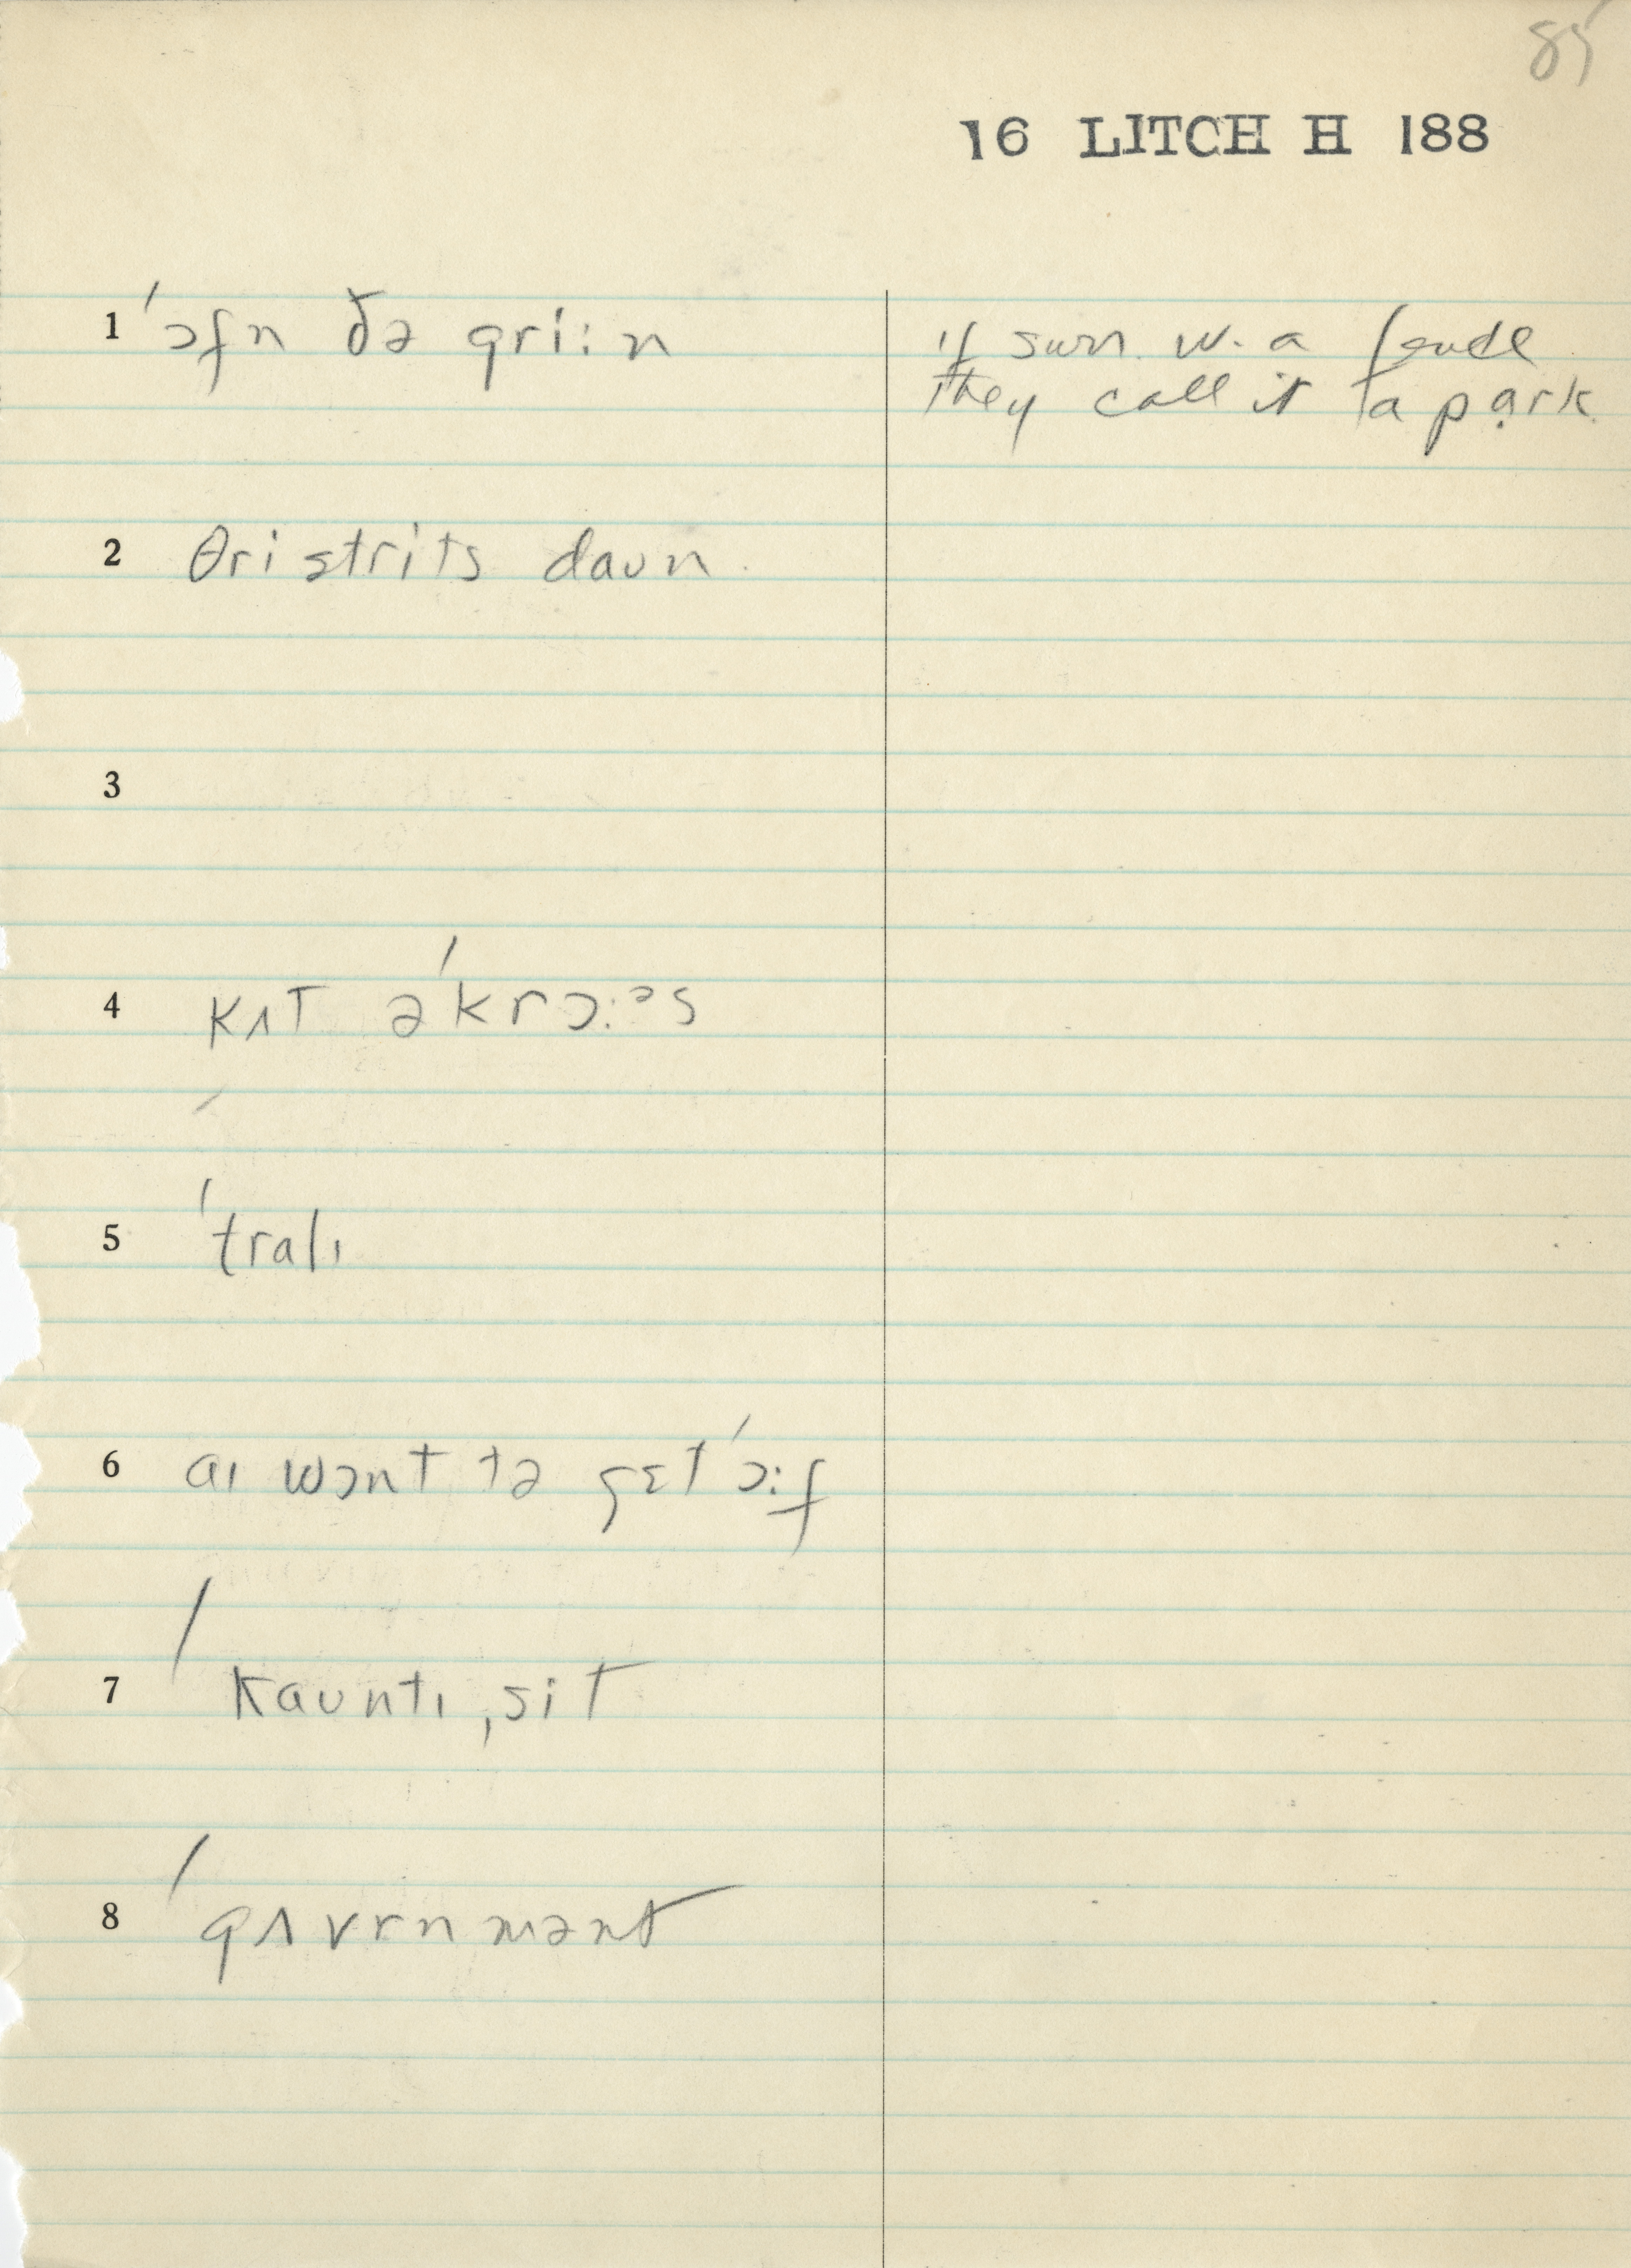 85
16 LITCH H 188
1 ˈɔfn ðə gri:n
if surr. w. a fence
they call it a park
2 θri strits daʊn
3
4 kʌt əˈkrɔ:ᵊs
5 ˈtralɪ
6 aɪ wɔnt tə gɛt ˈɔ:f
7 ˈkaʊntɪ ˌsit
8 ˈgʌvrnmənt